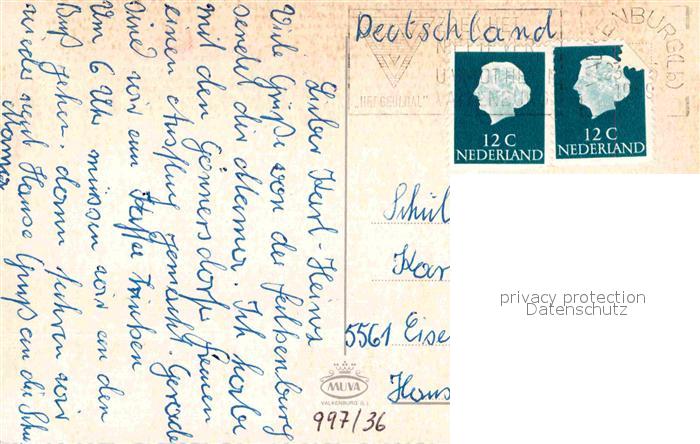 Lieber Karl-Heinz
Viele Grüße von der Felsenburg
sendet dir Mama. Ich habe
mit den Gönnersdorf Frauen
einen Ausflug gemacht. Gerade
sind wir am Kaffe trinken
Um 6 Uhr müssen wir an den
Buß gehen. dann fahren wir
wieder nach Hause Gruß an die
Mama
Deutschland
"HET GEULDAL"
12 C
NEDERLAND
12 C
NEDERLAND
Schül
Kar
5561 Eise
Haus
privacy protection
Datenschutz
MUVA
VALKENBURG (L.)
997/36